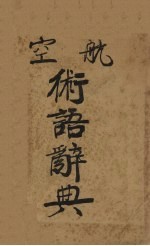 航空
術語辭典